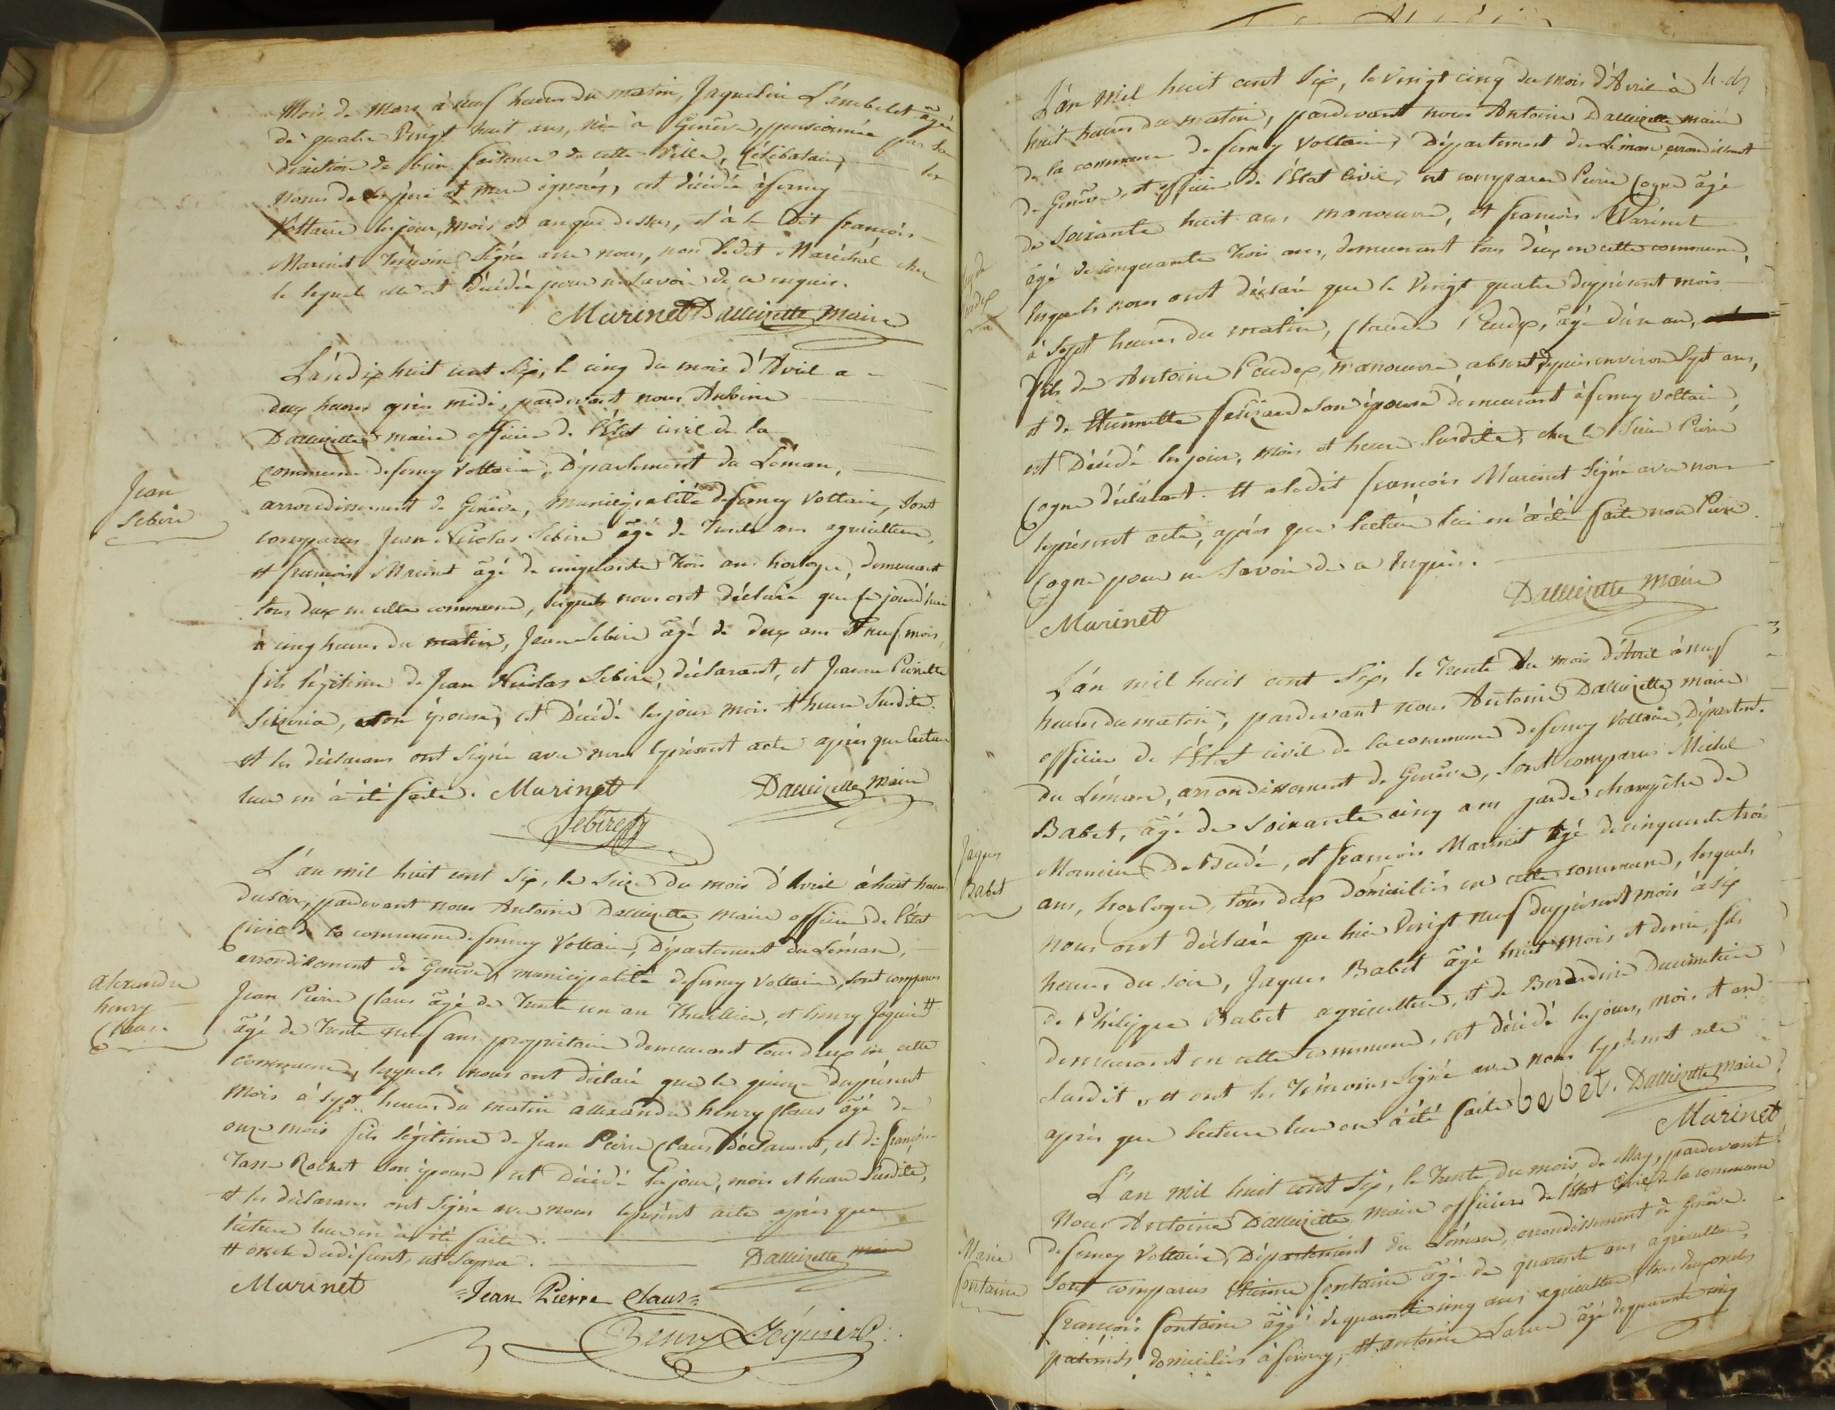 Mois de Mars à neuf heures du matin, Jaqueline Lambelet âgée
de quatre Vingt huit ans, née à Genêve, pensionnée par la
Direction de bien faisance de cette Ville, Célibataire, les
noms de ses père et mere ignorés, est décédée à ferney
Voltaire les jour, mois et an que dessus, et à le dit françois
Marinet Témoin Signé avec nous, non ledit Maréchal chez
lequel elle est décédée pour ne savoir de ce requis.
Marinet Dallizette Maire
L'an dix huit cent Six, le cinq du mois d'Avril a
deux heures après midi, pardevant nous Antoine
Dallizette maire officier de l'État civil de la
Commune de ferney Voltaire, Département du Léman,
arrondissement de Genêve, municipalité de ferney Voltaire, Sont
comparus Jean Nicolas Sebire âgé de Trente ans agriculteur,
et françois Marinet âgé de cinquante trois ans horloger, demeurant
tous deux en cette commune, lesquels nous ont déclaré que ce jourd'hui
à cinq heures du matin, Jean Sebire âgé de deux ans et neuf mois,
fils légitime de Jean Nicolas Sebire, déclarant, et Jeanne Pierrette
son épouse, est Décédé les jour mois et heure Susdite.
Et les déclarans ont Signé avec nous le présent acte après que lecture
leur en à été faite. Marinet Dallizette Maire
Sebire
Jean
Sebire
L'an mil huit cent Six, le Seize du mois d'Avril à huit heures
du soir, pardevant nous Antoine Dallizette maire officier de l'état
Civil de la commune de ferney Voltaire, Département du Léman,
arrondissement de Genêve, municipalité de ferney Voltaire, sont comparus
Jean Pierre Claus âgé de Trente un an Thuillier, et henry Jéquier
âgé de Trente neuf ans, propriétaire demeurant tous deux en cette
commune, lesquels nous ont déclaré que le quinze du présent
mois à sept heures du matin alexandre henry Claus âgé de
onze mois fils légitime de Jean Pierre Claus Déclarant, et de françoise
Rochat son épouse est Décédé les jour, mois et heure Susdite,
et les déclarans ont Signé avec nous le présent acte après que
lecture leur en à été faite.
Dallizette maire
Marinet Jean Pierre Claus
Henry Jéquier
alexandre
henry
Claus.
L'an mil huit cent Six, le vingt cinq du mois d'Avril à
huit heures du matin, pardevant nous Antoine Dallizette maire
de la commune de ferney Voltaire, Département du Léman arrondissement
de Genêve, et officier de l'État Civil, est comparu Pierre Cogne âgé
de Soixante huit ans manœuvre, et françois Marinet
âgé de cinquante trois ans, demeurant tous deux en cette commune,
lesquels nous ont déclaré que le Vingt quatre du présent mois
à Sept heures du matin, Claude Peudex, âgé d'un an,
fils de Antoine Peudex, manœuvre absent depuis environ Sept ans,
et de son épouse demeurant à ferney Voltaire,
est Décédé les jour, mois et heure Susdite, chez le Sieur Pierre
Cogne déclarant. Et a ledit françois Marinet Signé avec nous
le présent acte, après que lecture lui en à été faite non Pierre
Cogne pour ne Savoir de ce requis.
Dallizette Maire
Marinet
L'an mil huit cent Six, le Trente du mois d'Avril à neuf
heures du matin, pardevant nous Antoine Dallizette maire
officier de l'État civil de la commune de ferney Voltaire, Département
du Léman, arrondissement de Genêve, Sont comparus Michel
Babet, âgé de Soixante cinq ans garde champêtre de
Monsieur De Budé, et françois Marinet âgé de cinquante trois
ans, horloger, tous deux domiciliés en cette commune, lesquels
nous ont déclaré que hier Vingt neuf du présent mois à six
heures du soir, Jaques Babet âgé huit mois et demi, fils
de Philippe Babet agriculteur, et de
demeurant en cette commune, est décédé les jour, mois et an
Susdit, et ont les Témoins Signé avec nous le présent acte
après que lecture leur en à été faite bebet. Dallizette Maire
Marinet
Jaques
Babet
L'an mil huit cent Six, le Trente du mois de May, pardevant
Nous Antoine Dallizette maire officier de l'état Civil de la commune
de ferney Voltaire, Département du Léman, arrondissement de Genêve,
Sont comparus Etienne fontaine âgé de quarante ans agriculteur,
françois fontaine âgé de quarante cinq ans agriculteur
domiciliés à ferney, et antoine âgé de quarante cinq
Marie
fontaine